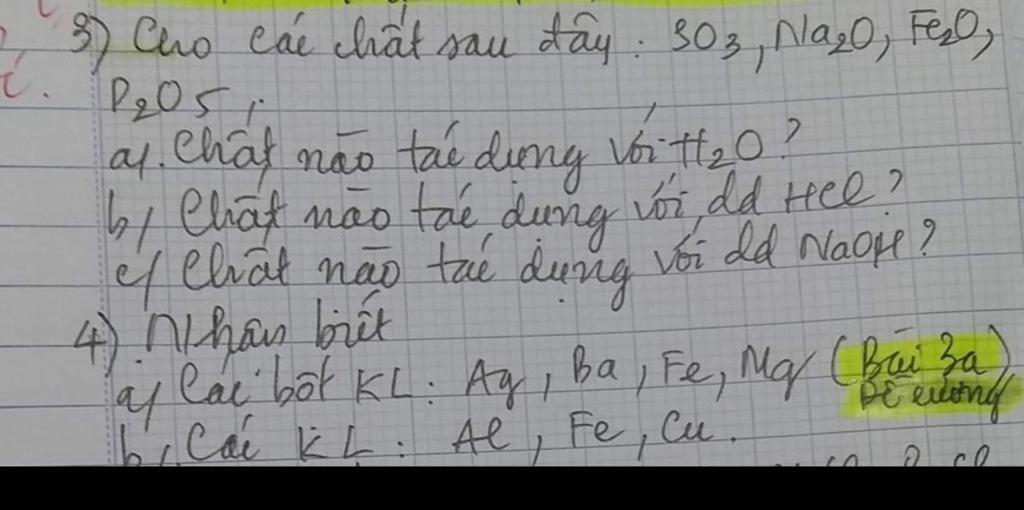 3) Cho các chất sau đây: SO3, Na2O, Fe2O,
P2O5;
a). Chất nào tác dụng với H2O?
b) Chất nào tác dụng với dd HCl?
c) Chất nào tác dụng với dd NaOH?
4) Nhận biết
a) Các bột KL: Ag, Ba, Fe, Mg (Bài 3a)
Đề cương
b) Các KL: Al, Fe, Cu.